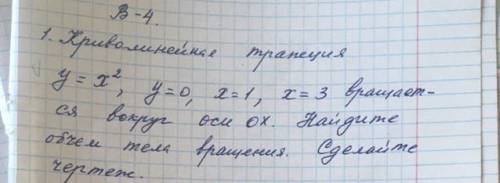 В-4.
1. Криволинейная трапеция
y = x², y=0, x=1, x=3 вращает-
ся вокруг оси ох. Найдите
объем тела вращения. Сделайте
чертеж.